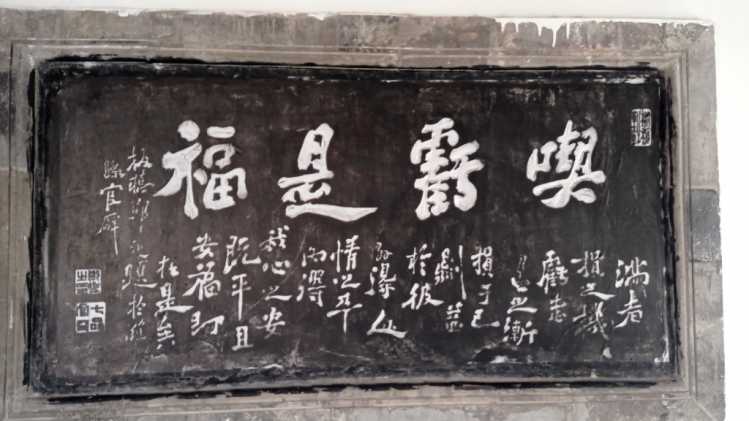 喫虧是福
滿者
損之機
虧者
盈之漸
損于己
則益
於彼
外得人
情之平
内得
我心之安
既平且
安福即
在是矣
板橋鄭燮題於濰
縣官廨
七品官耳